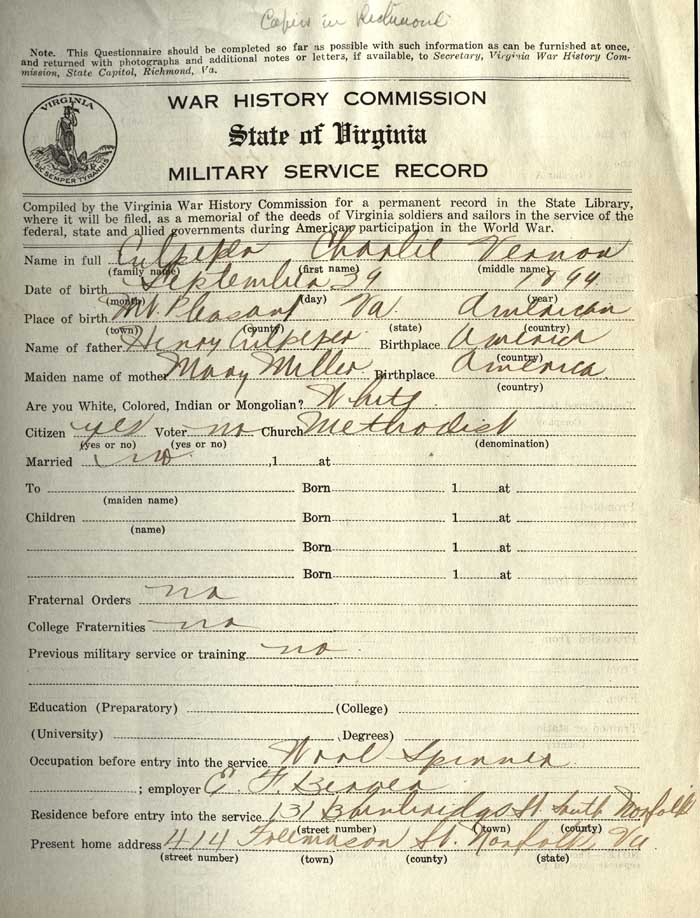 Copies in Richmond
Note. This Questionnaire should be completed so far as possible with such information as can be furnished at once,
and returned with photographs and additional notes or letters, if available, to Secretary, Virginia War History Com-
mission, State Capitol, Richmond, Va.
VIRGINIA
SIC SEMPER TYRANNIS
WAR HISTORY COMMISSION
State of Virginia
MILITARY SERVICE RECORD
Compiled by the Virginia War History Commission for a permanent record in the State Library,
where it will be filed, as a memorial of the deeds of Virginia soldiers and sailors in the service of the
federal, state and allied governments during American participation in the World War.
Name in full Culpeper Charlie Vernon
(family name) (first name) (middle name)
Date of birth September 29 1899
(month) (day) (year)
Place of birth Mt. Pleasant Va. American
(town) (county) (state) (country)
Name of father Henry Culpeper Birthplace America
(country)
Maiden name of mother Mary Miller Birthplace America
(country)
Are you White, Colored, Indian or Mongolian? White
Citizen yes Voter no Church Methodist
(yes or no) (yes or no) (denomination)
Married no ,1 at
To Born 1 at
(maiden name)
Children Born 1 at
(name)
Born 1 at
Born 1 at
Fraternal Orders no
College Fraternities no
Previous military service or training no
Education (Preparatory) (College)
(University) (Degrees)
Occupation before entry into the service Wool Spinner
; employer E. F.
Residence before entry into the service 131 Bainbridge St. South Norfolk
(street number) (town) (county)
Present home address 414 Freemason St. Norfolk, Va
(street number) (town) (county) (state)